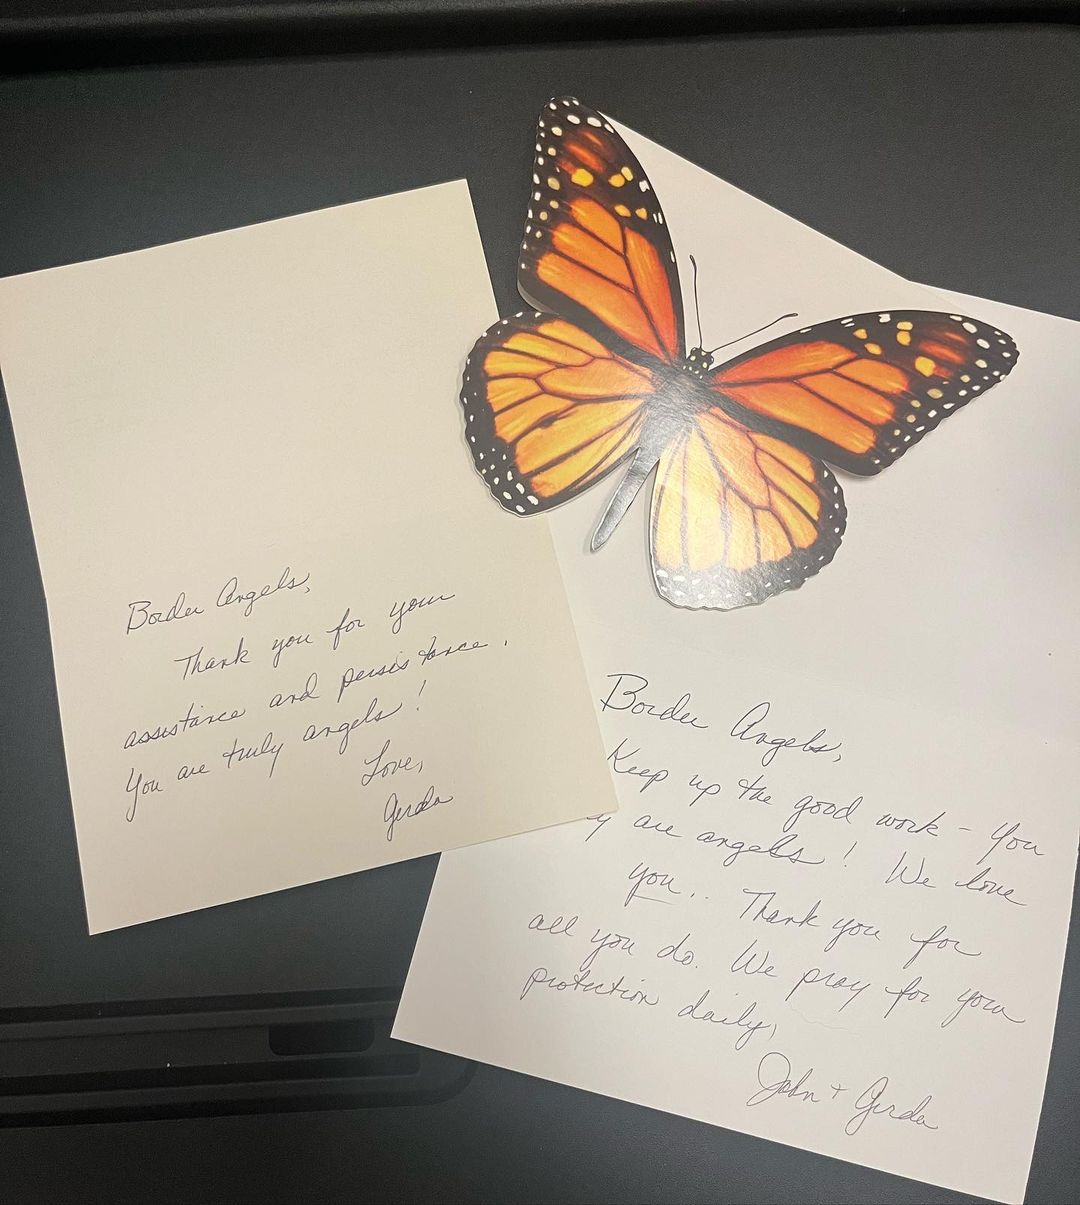 Border Angels,
Thank you for your
assistance and persistance.
You are truly angels!
Love,
Gerda
Border Angels,
Keep up the good work - You
y are angels! We love
you.. Thank you for
all you do. We pray for your
protection daily,
John + Gerda